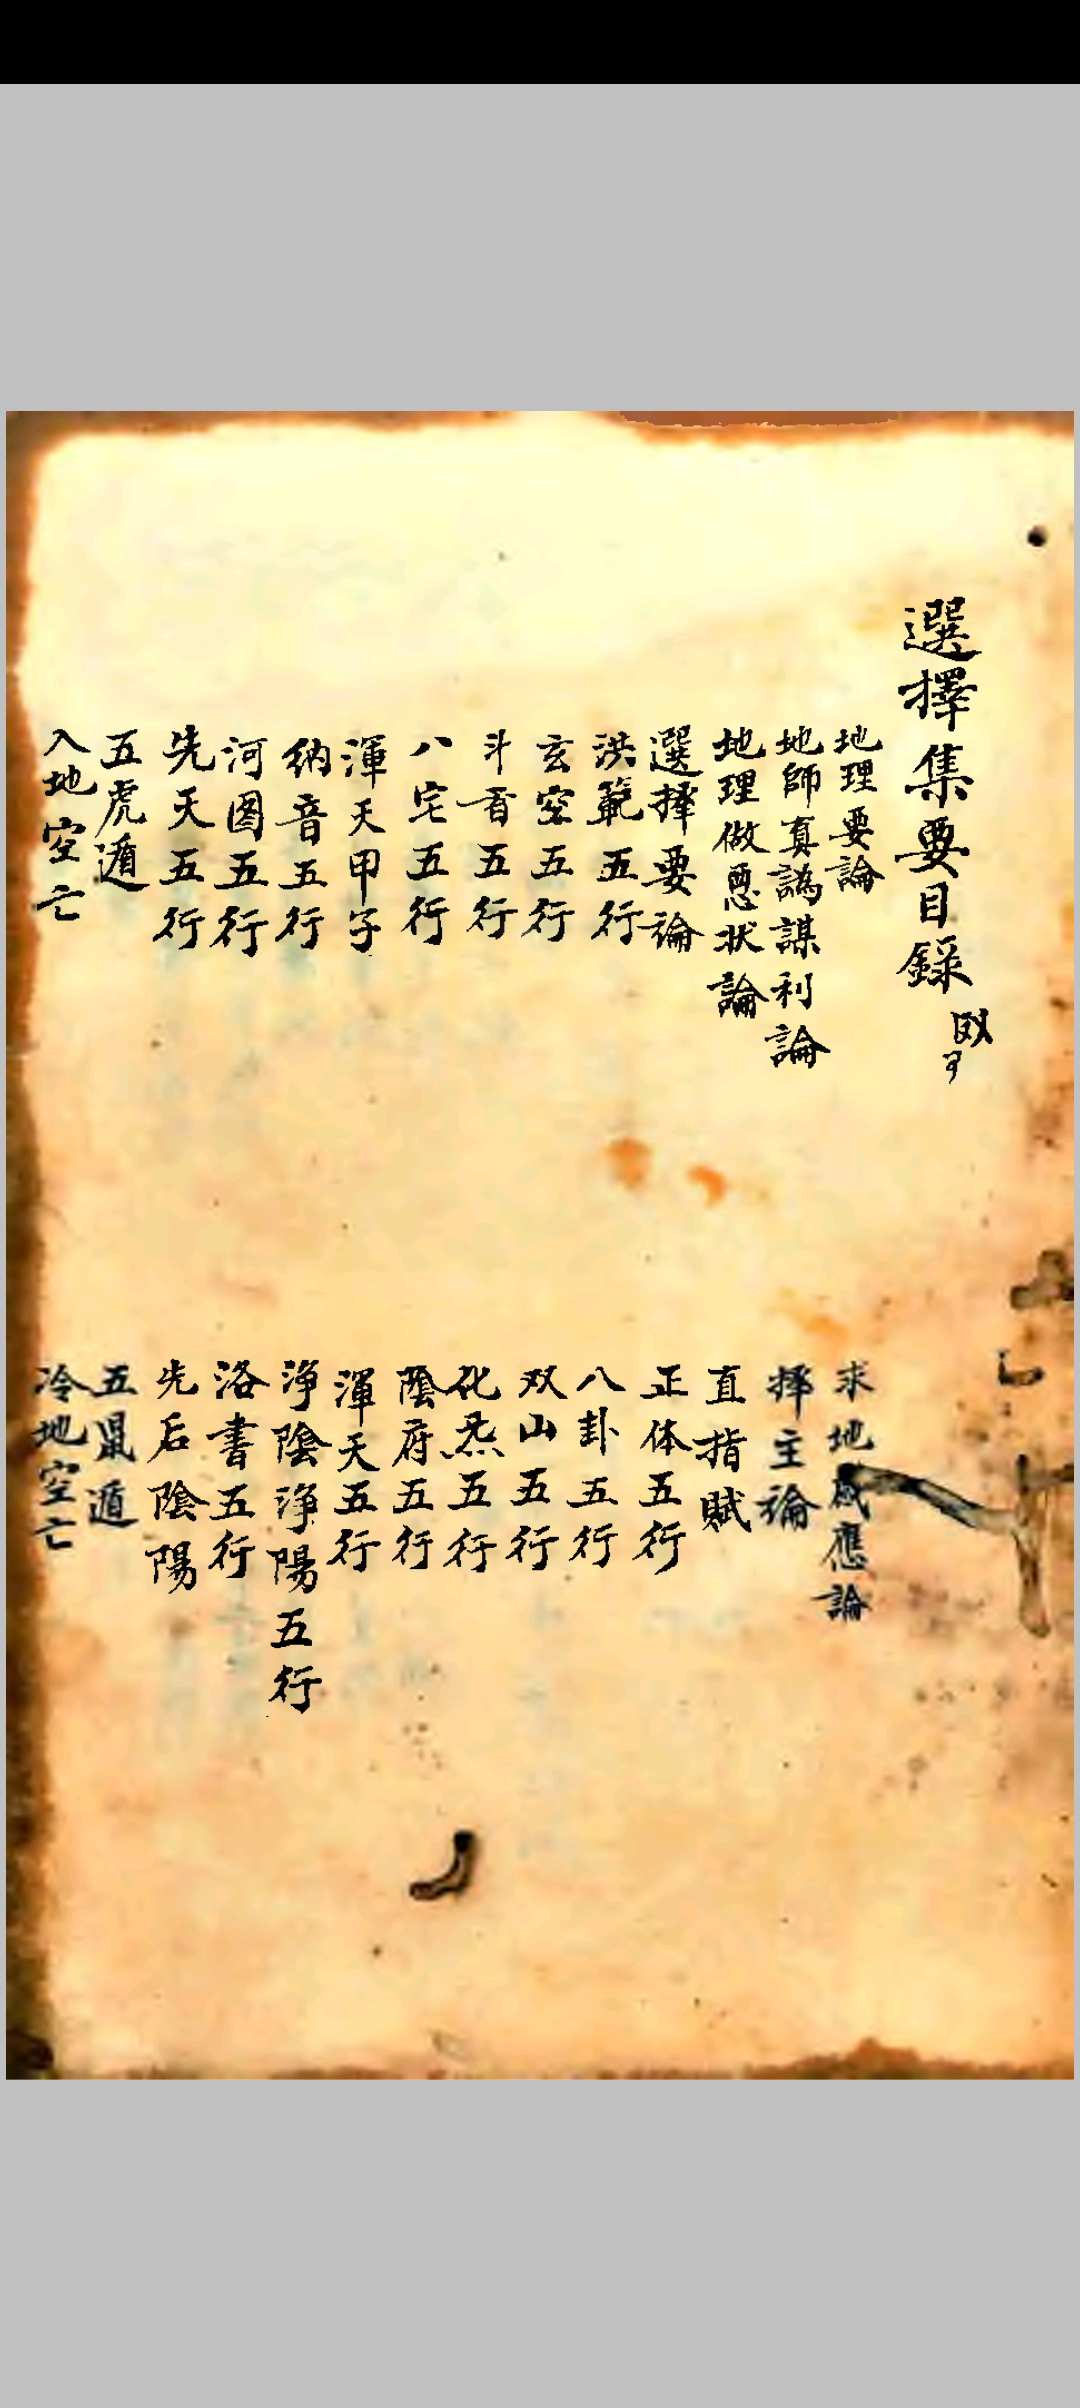 選擇集要目錄
地理要論
求地感應論
地師真譌謀利論
擇主論
地理做惡状論
直指賦
選擇要論
正体五行
洪範五行
八卦五行
玄空五行
双山五行
斗首五行
化炁五行
八宅五行
陰府五行
渾天甲子
渾天五行
納音五行
淨陰淨陽五行
河图五行
洛書五行
先天五行
先后陰陽
五虎遁
五鼠遁
入地空亡
冷地空亡